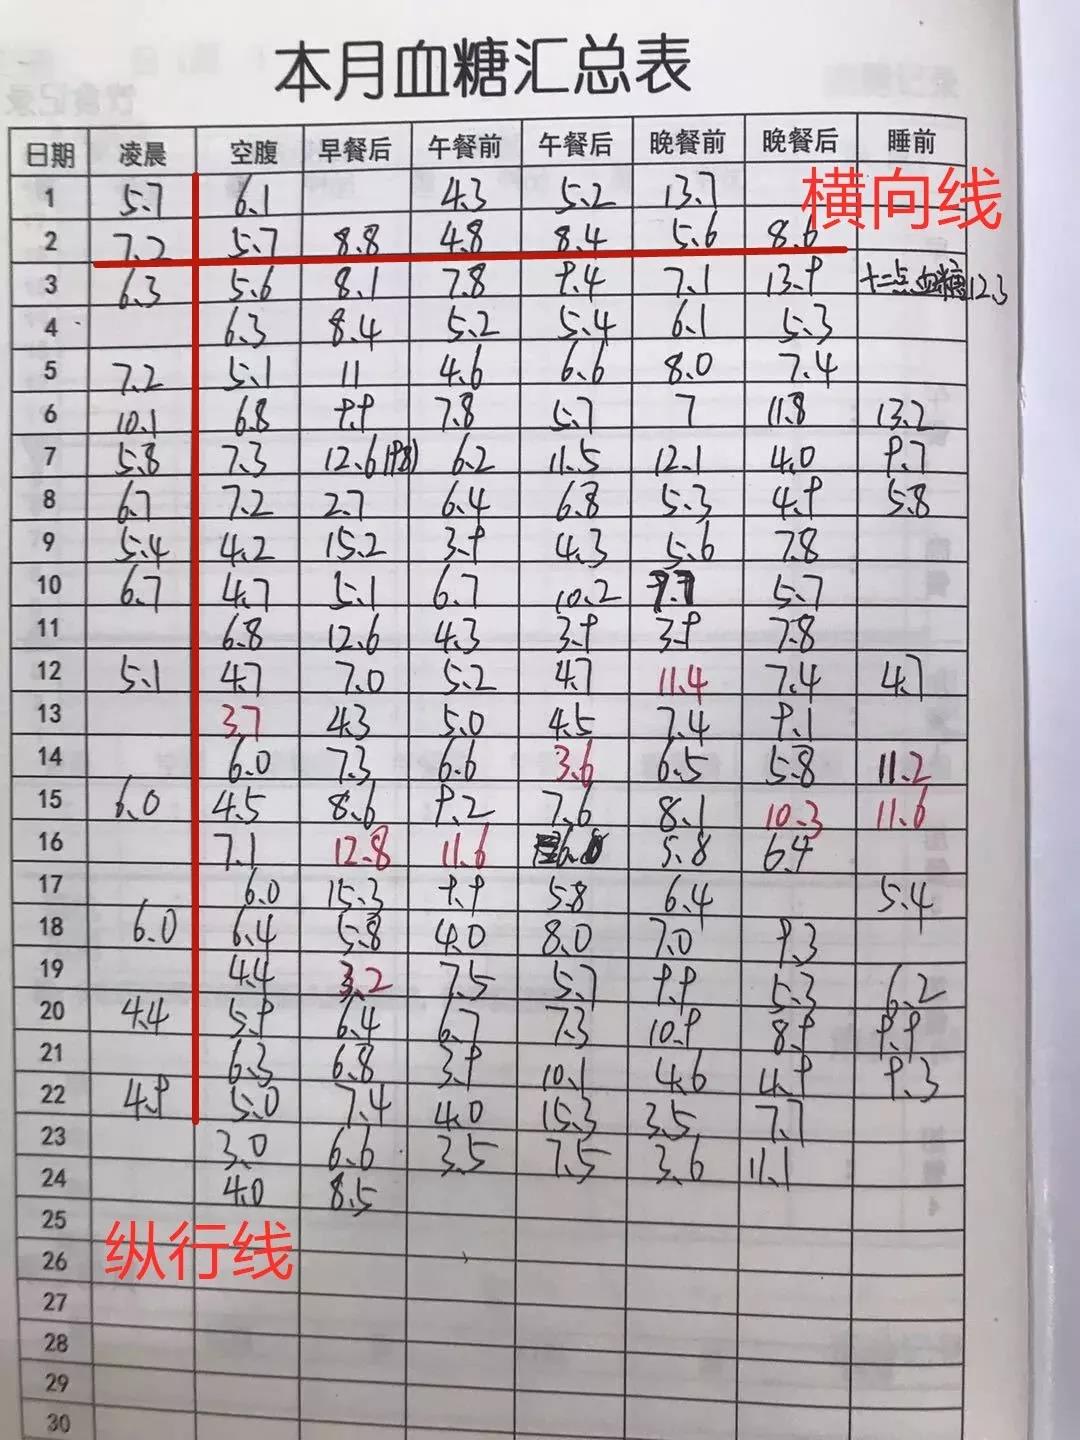 本月血糖汇总表
日期 凌晨 空腹 早餐后 午餐前 午餐后 晚餐前 晚餐后 睡前
横向线
1 5.7 6.1 4.3 5.2 13.7
2 7.2 5.7 8.8 4.8 8.4 5.6 8.6
3 6.3 5.6 8.1 7.8 9.4 7.1 13.9 十二点血糖12.3
4 6.3 8.4 5.2 5.4 6.1 5.3
5 7.2 5.1 11 4.6 6.6 8.0 7.4
6 10.1 6.8 9.9 7.8 5.7 7 11.8 13.2
7 5.8 7.3 12.6 6.2 11.5 12.1 4.0 9.7
8 6.7 7.2 2.7 6.4 6.8 5.3 4.9 5.8
9 5.4 4.2 15.2 3.9 4.3 5.6 7.8
10 6.7 4.7 5.1 6.7 10.2 5.7
11 6.8 12.6 4.3 3.9 3.9 7.8
12 5.1 4.7 7.0 5.2 4.7 11.4 7.4 4.7
13 3.7 4.3 5.0 4.5 7.4 9.1
14 6.0 7.3 6.6 3.6 6.5 5.8 11.2
15 6.0 4.5 8.6 9.2 7.6 8.1 10.3 11.6
16 7.1 12.8 11.6 5.8 6.4
17 6.0 15.3 9.9 5.8 6.4 5.4
18 6.0 6.4 5.8 4.0 8.0 7.0 9.3
19 4.4 3.2 7.5 5.7 9.9 5.3 6.2
20 4.4 5.9 6.4 6.7 7.3 10.9 8.9 9.9
21 6.3 6.8 3.9 10.1 4.6 4.9 9.3
22 4.9 5.0 7.4 4.0 15.3 3.5 7.7
23 3.0 6.6 3.5 7.5 3.6 11.1
24 4.0 8.5
25
纵行线
26
27
28
29
30